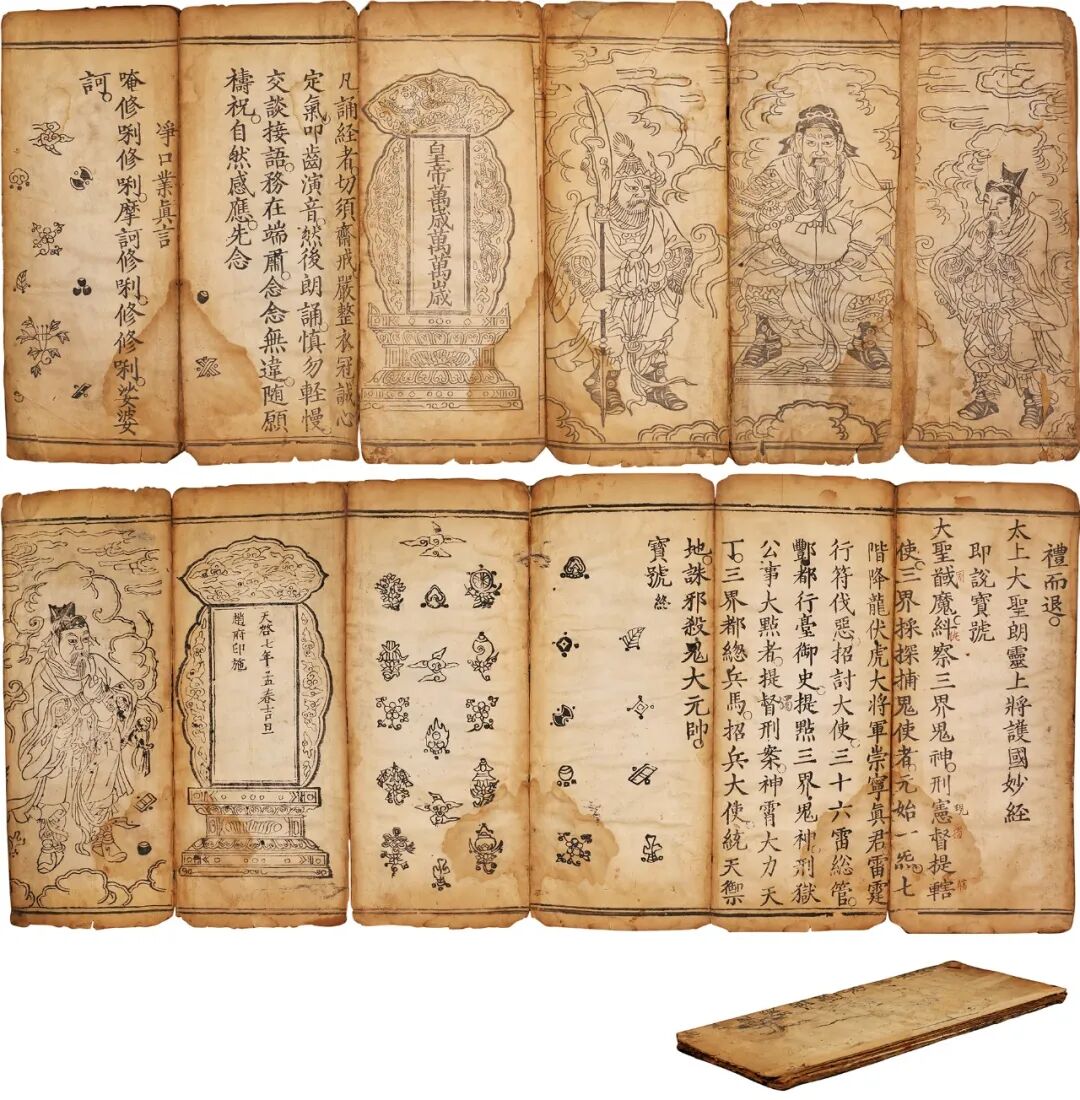 皇帝萬歲萬萬歲
凡誦経者切須齋戒嚴整衣冠誠心
定氣叩齒演音。然後朗誦。慎勿軽慢
交談接語。務在端肅念念無違。随願
禱祝。自然感應。先念
淨口業眞言
唵修唎修唎。摩訶修唎。修修唎。娑婆
訶。
禮而退。
太上大聖朗靈上將護國妙経
即說寶號
大聖馘魔糾察三界鬼神刑憲督提轄
使。三界採探捕鬼使者。元始一炁。七
階降龍伏虎大將軍崇寧眞君雷霆
行符伐惡招討大使。三十六雷総管。
酆都行臺御史。提點三界鬼神。刑獄
公事大點者。提督刑案。神霄大力天
丁。三界都緫兵馬。招兵大使。統天禦
地。誅邪殺鬼大元帥。
寶號 終
天啓七年孟春吉旦
趙府印施